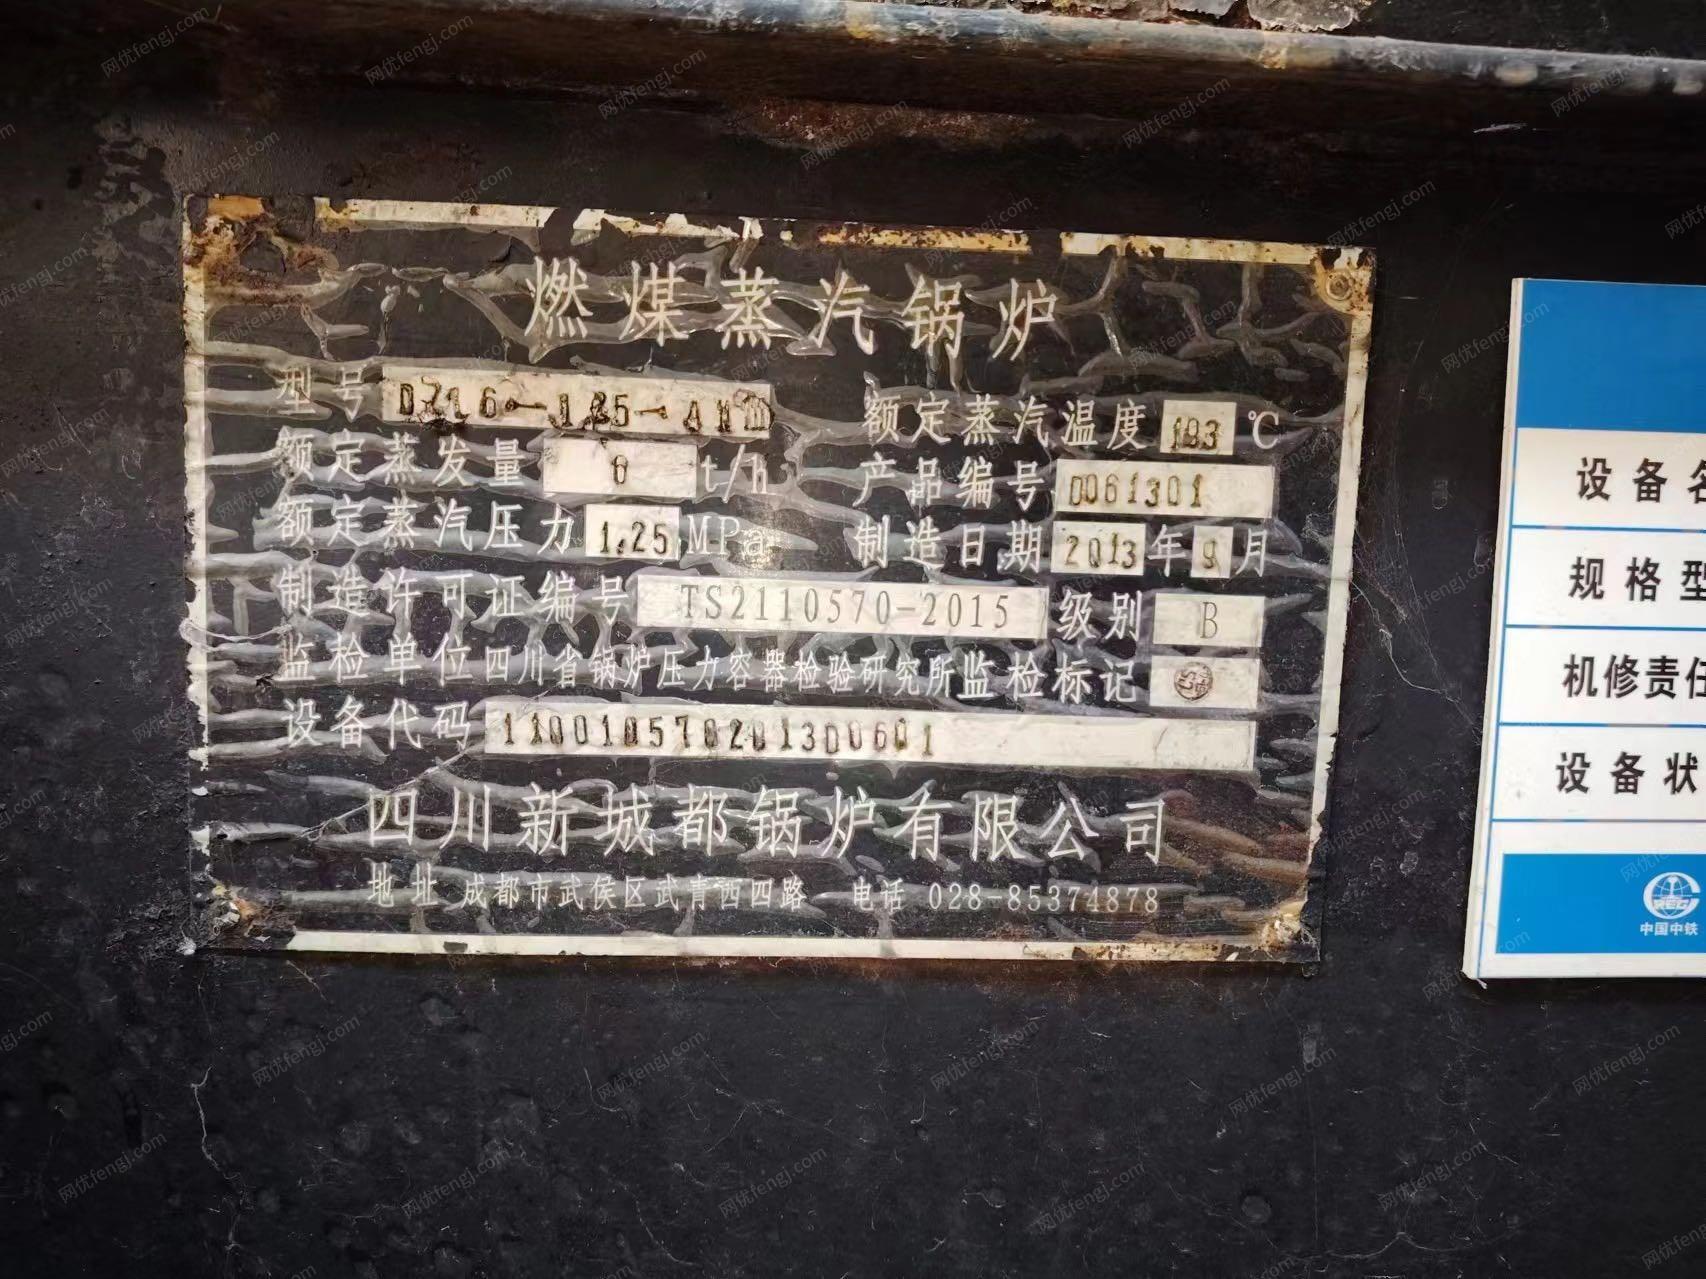 燃煤蒸汽锅炉
型号 DZL6-1.25-AⅡ 额定蒸汽温度 193 ℃
额定蒸发量 6 t/h 产品编号 D061301
额定蒸汽压力 1.25 MPa 制造日期 2013 年 9 月
制造许可证编号 TS2110570-2015 级别 B
监检单位 四川省锅炉压力容器检验研究所 监检标记
设备代码 11001057020130601
四川新城都锅炉有限公司
地址 成都市武侯区武青西四路 电话 028-85374878
设备名
规格型
机修责任
设备状
中国中铁
网优fengj.com